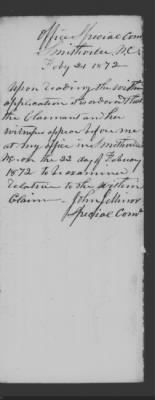 Office Special Com
Smithville N.C.
Feby 21 1872
Upon reading the within
application it is ordered that
the Claimant and her
witnesses appear before me
at my office in Smithville
NC on the 22 day of February
1872 to be examined
relative to the within
Claim John
Special Comr